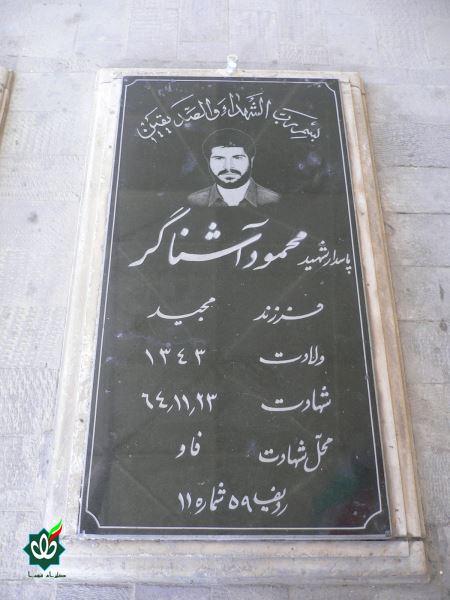 بسم رب الشهداء والصدیقین
پاسدار شهید محمود آشناگر
فرزند مجید
ولادت ۱۳۴۳
شهادت ۶۴٫۱۱٫۲۳
محلّ شهادت فاو
ردیف ۵۹ شماره ۱۱